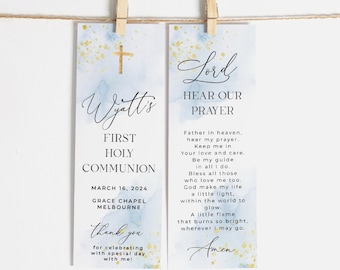 Wyatt's
FIRST
HOLY
COMMUNION
MARCH 16, 2024
GRACE CHAPEL
MELBOURNE
thank you
for celebrating
with special day
with me!
Lord
HEAR OUR
PRAYER
Father in heaven,
hear my prayer.
Keep me in
Your love and care.
Be my guide
in all I do.
Bless all those
who love me too.
God make my life
a little light,
within the world to
glow.
A little flame
that burns so bright,
wherever I may go.
Amen